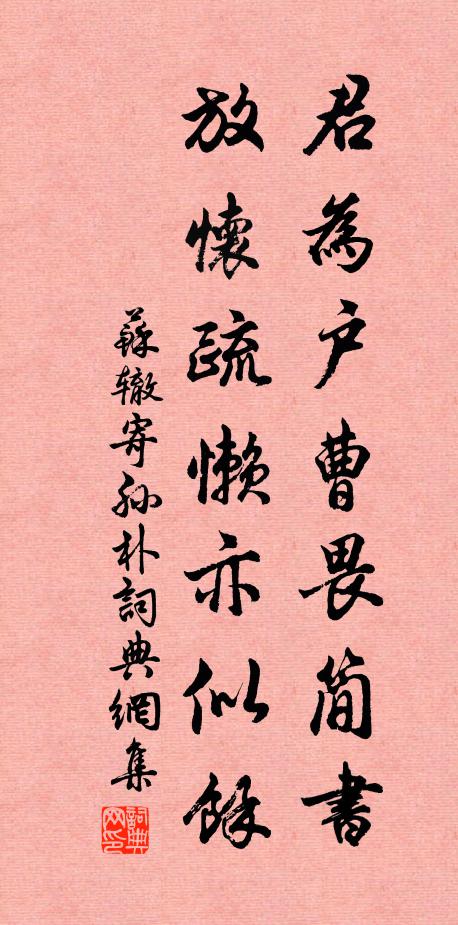 君為戶曹畏簡書
放懷疏懶亦似餘
蘇轍寄孙朴詞典網集
詞典網印